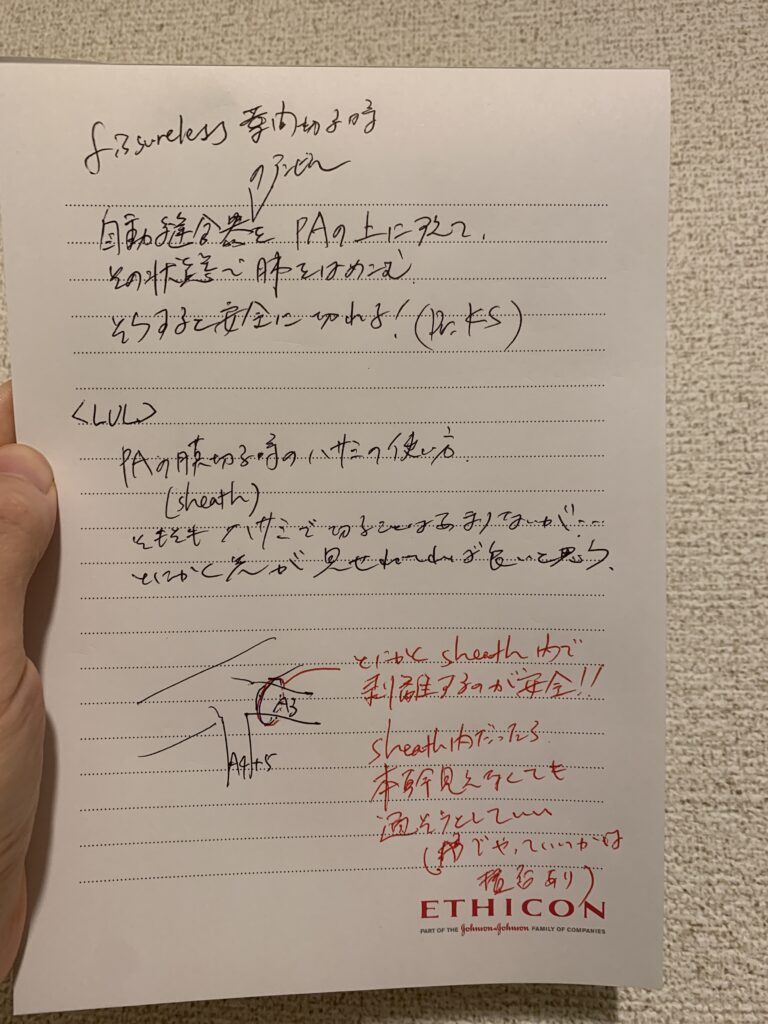 fissureless 葉間切る時
のアンビル
自動縫合器を PAの上に沿えて、
その状態で 肺をはめこむ
そうすると安全に切れる! (Dr. KS)
<LUL>
PAの膜切る時のハサミの使い方
(sheath)
そもそも ハサミで切ることはあまりないが…
とにかく先が見せれていれば良いと思う。
とにかく sheath内で
剥離するのが安全!!
A3
A4+5
sheath内だったら
本幹見えなくても
通そうとしていい
でやっていいかは
ありり)
ETHICON
PART OF THE Johnson & Johnson FAMILY OF COMPANIES